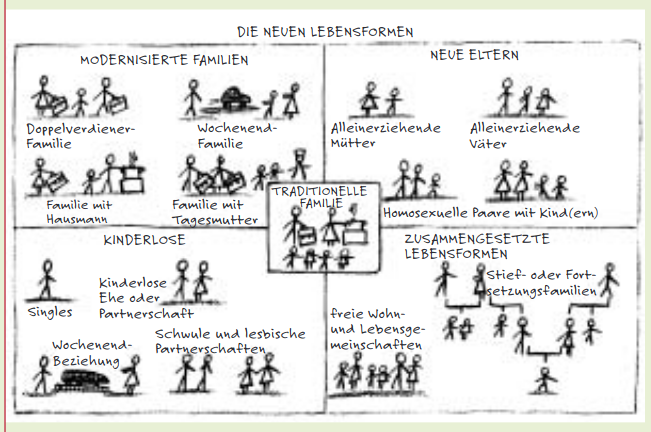 DIE NEUEN LEBENSFORMEN
MODERNISIERTE FAMILIEN
Doppelverdiener-
Familie
Wochenend-
Familie
Familie mit
Hausmann
Familie mit
Tagesmutter
NEUE ELTERN
Alleinerziehende
Mütter
Alleinerziehende
Väter
Homosexuelle Paare mit Kind(ern)
TRADITIONELLE
FAMILIE
KINDERLOSE
Singles
Kinderlose
Ehe oder
Partnerschaft
Wochenend-
Beziehung
Schwule und lesbische
Partnerschaften
ZUSAMMENGESETZTE
LEBENSFORMEN
Stief- oder Fort-
setzungsfamilien
freie Wohn-
und Lebensge-
meinschaften